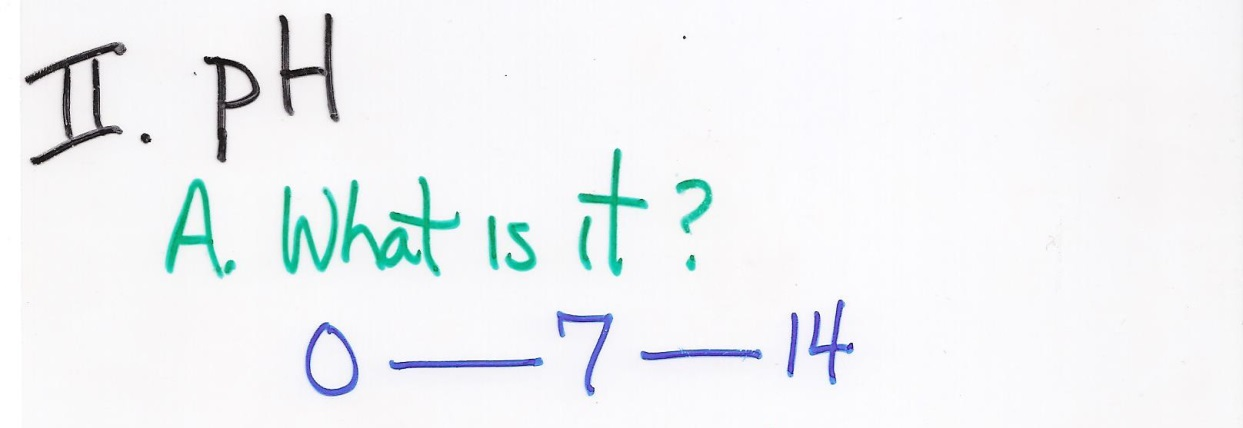 II. pH
A. What is it?
0 — 7 — 14